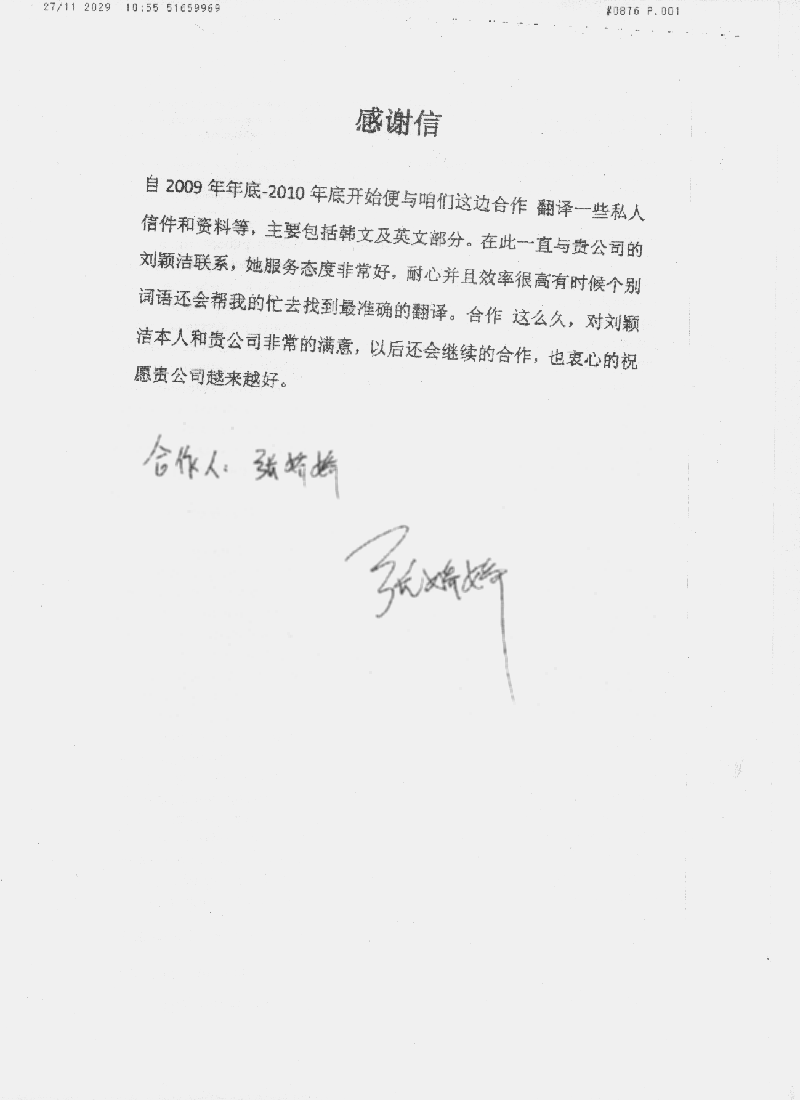 27/11 2029 10:55 51659969 #0876 P.001
感谢信
自 2009 年年底-2010 年底开始便与咱们这边合作 翻译一些私人
信件和资料等，主要包括韩文及英文部分。在此一直与贵公司的
刘颖洁联系，她服务态度非常好，耐心并且效率很高有时候个别
词语还会帮我的忙去找到最准确的翻译。合作 这么久，对刘颖
洁本人和贵公司非常的满意，以后还会继续的合作，也衷心的祝
愿贵公司越来越好。
合作人：张娇娇
张娇娇